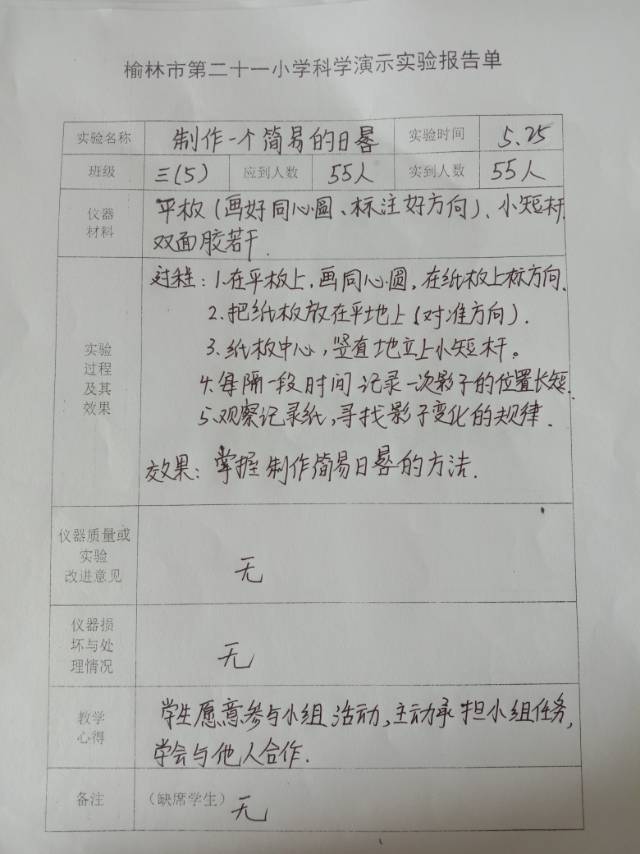 榆林市第二十一小学科学演示实验报告单
实验名称 制作一个简易的日晷 实验时间 5.25
班级 三(5) 应到人数 55人 实到人数 55人
仪器
材料
平板(画好同心圆、标注好方向)、小短杆
双面胶若干.
实验
过程
及其
效果
过程:1.在平板上,画同心圆,在纸板上标方向.
2.把纸板放在平地上(对准方向).
3.纸板中心,竖直地立上小短杆。
4.每隔一段时间记录一次影子的位置长短.
5.观察记录纸,寻找影子变化的规律.
效果:掌握制作简易日晷的方法.
仪器质量或
实验
改进意见
无
仪器损
坏与处
理情况
无
教学
心得
学生愿意参与小组活动,主动承担小组任务,
学会与他人合作.
备注 (缺席学生) 无